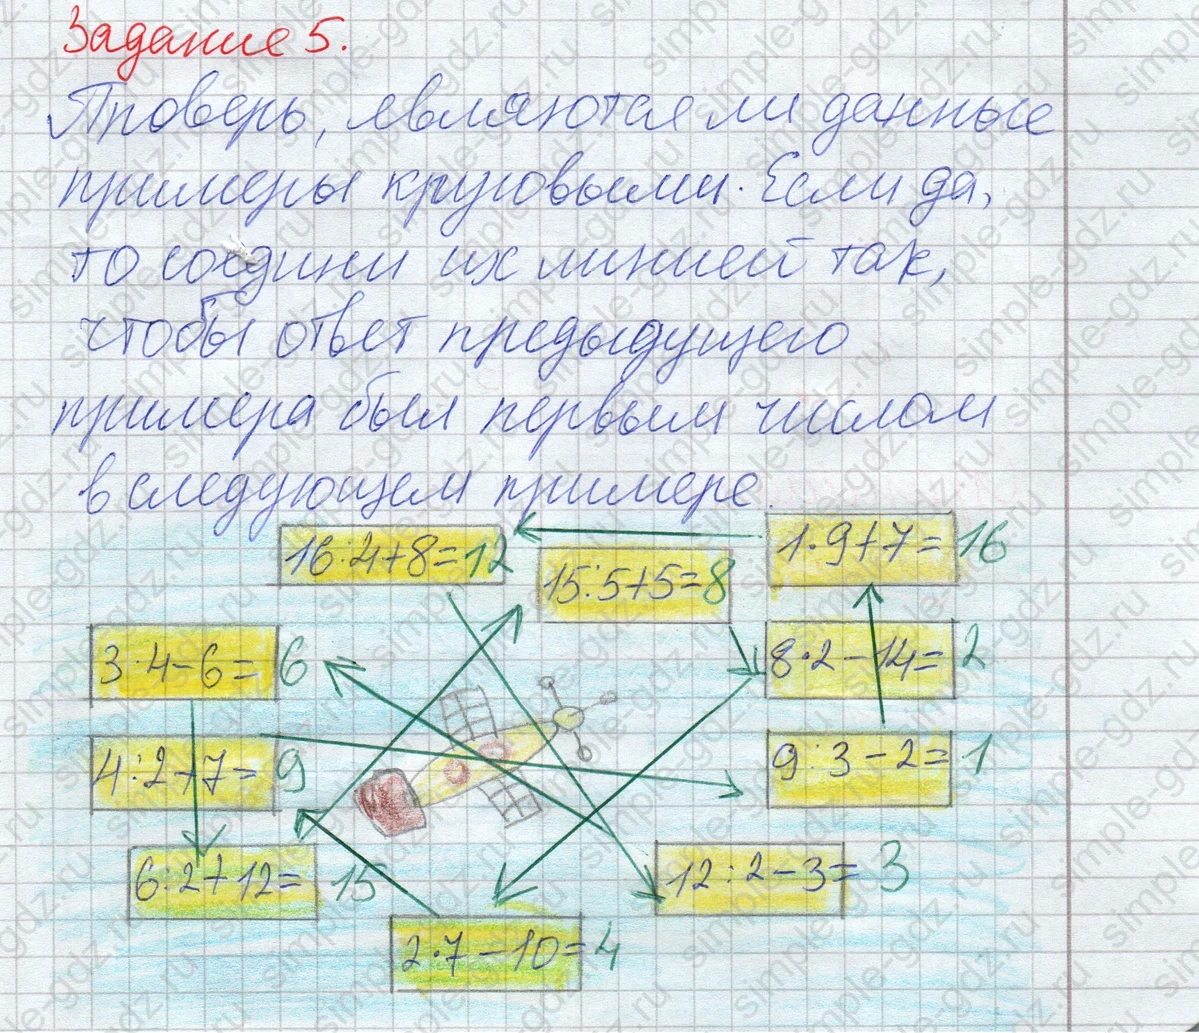 Задание 5.
Проверь, являются ли данные
примеры круговыми. Если да,
то соедини их линией так,
чтобы ответ предыдущего
примера был первым числом
в следующем примере.
16:4+8=12
15:5+5=8
1·9+7=16
3·4-6=6
8·2-14=2
4:2+7=9
9:3-2=1
6:2+12=15
12:2-3=3
2·7-10=4
simple-gdz.ru